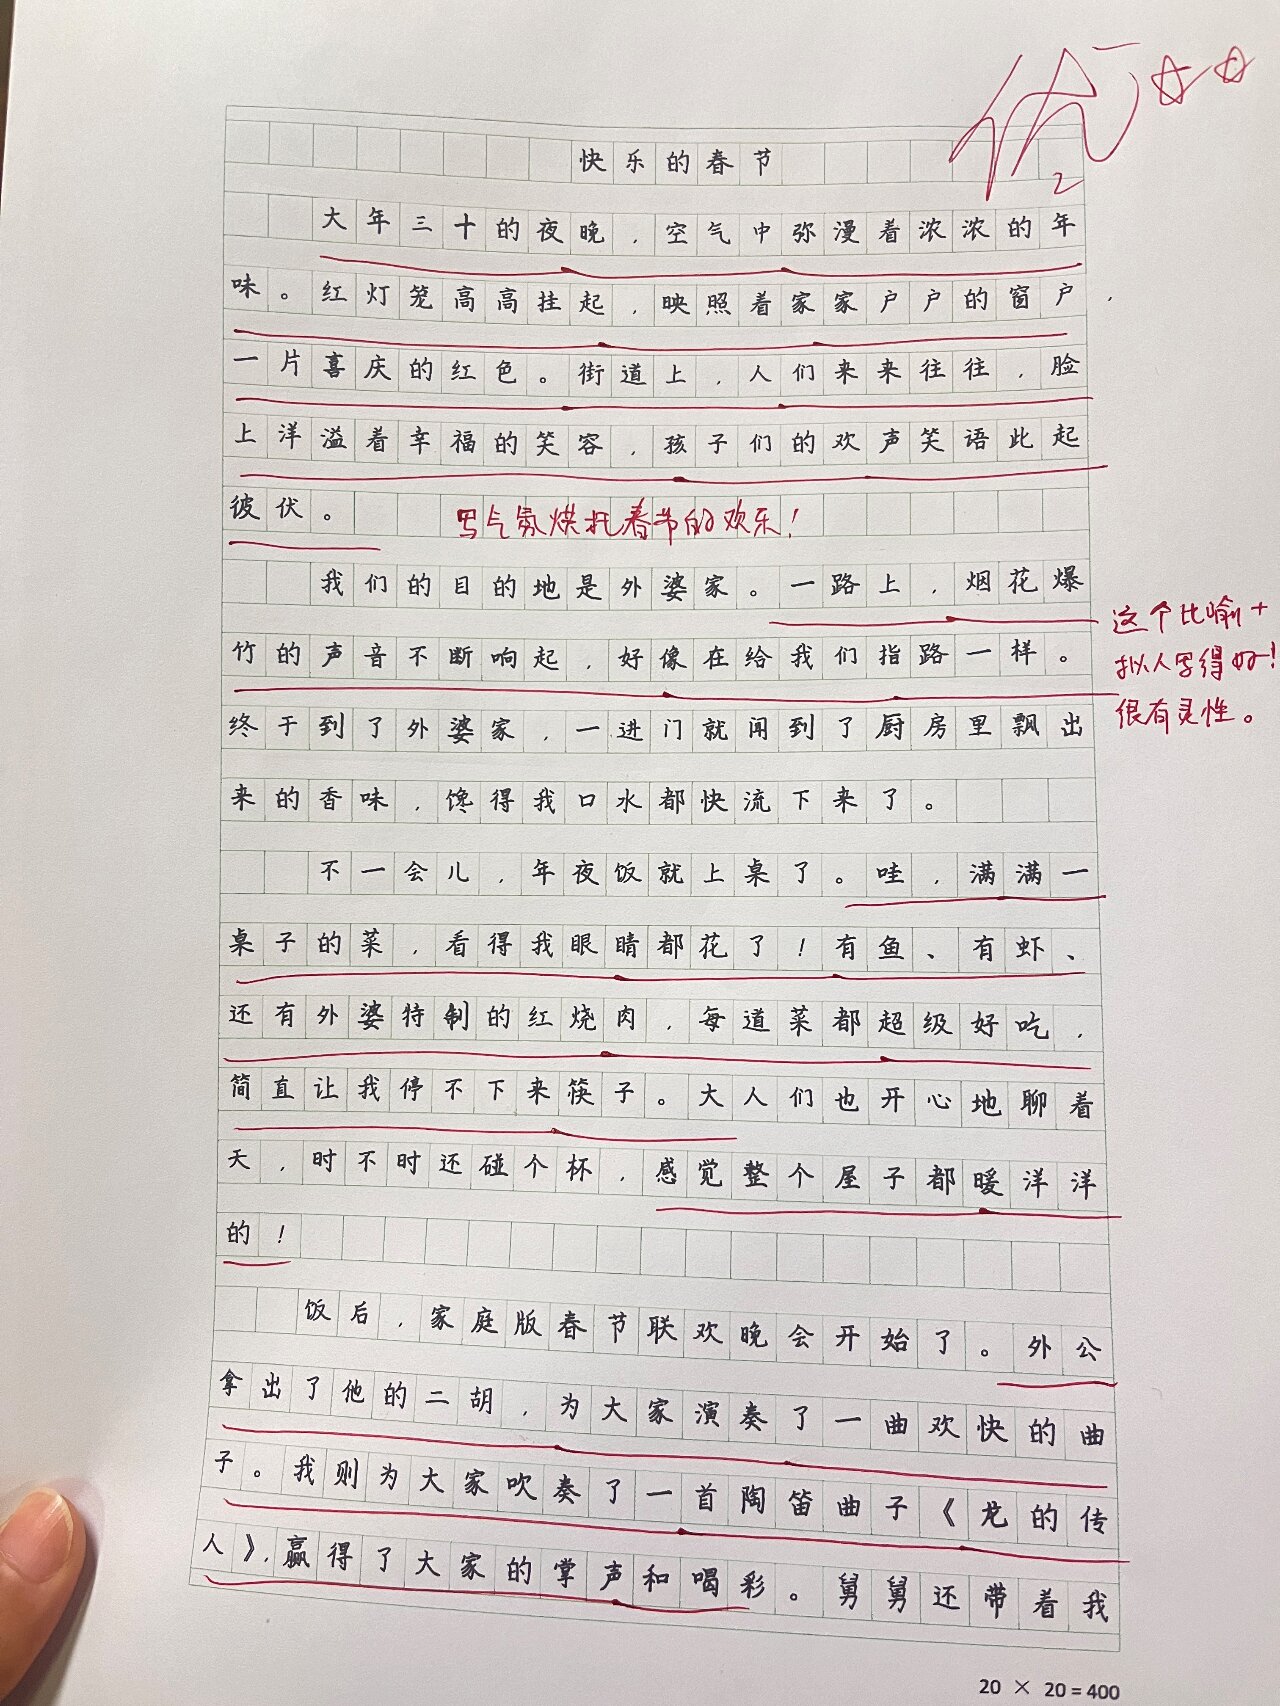 优
2
快乐的春节
大年三十的夜晚，空气中弥漫着浓浓的年
味。红灯笼高高挂起，映照着家家户户的窗户，
一片喜庆的红色。街道上，人们来来往往，脸
上洋溢着幸福的笑容，孩子们的欢声笑语此起
彼伏。
写气氛烘托春节的欢乐！
我们的目的地是外婆家。一路上，烟花爆
竹的声音不断响起，好像在给我们指路一样。
终于到了外婆家，一进门就闻到了厨房里飘出
来的香味，馋得我口水都快流下来了。
这个比喻+
拟人写得好！
很有灵性。
不一会儿，年夜饭就上桌了。哇，满满一
桌子的菜，看得我眼睛都花了！有鱼、有虾、
还有外婆特制的红烧肉，每道菜都超级好吃，
简直让我停不下来筷子。大人们也开心地聊着
天，时不时还碰个杯，感觉整个屋子都暖洋洋
的！
饭后，家庭版春节联欢晚会开始了。外公
拿出了他的二胡，为大家演奏了一曲欢快的曲
子。我则为大家吹奏了一首陶笛曲子《龙的传
人》，赢得了大家的掌声和喝彩。舅舅还带着我
20 × 20 = 400